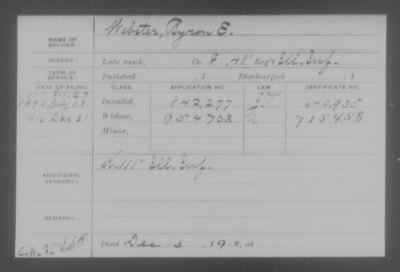 NAME OF SOLDIER: Webster, Byron E.
SERVICE: Late rank, Co. F, 48" Reg't Ill. Inf.
TERM OF SERVICE: Enlisted , 1 Discharged , 1
DATE OF FILING. CLASS. APPLICATION NO. LAW. CERTIFICATE NO.
1890 July 18 Invalid, 842,277 640,935
Dec 21 Widow, 954703 715458
Minor,
ADDITIONAL SERVICES: Ill. Inf.
REMARKS:
Died Dec 191 , at